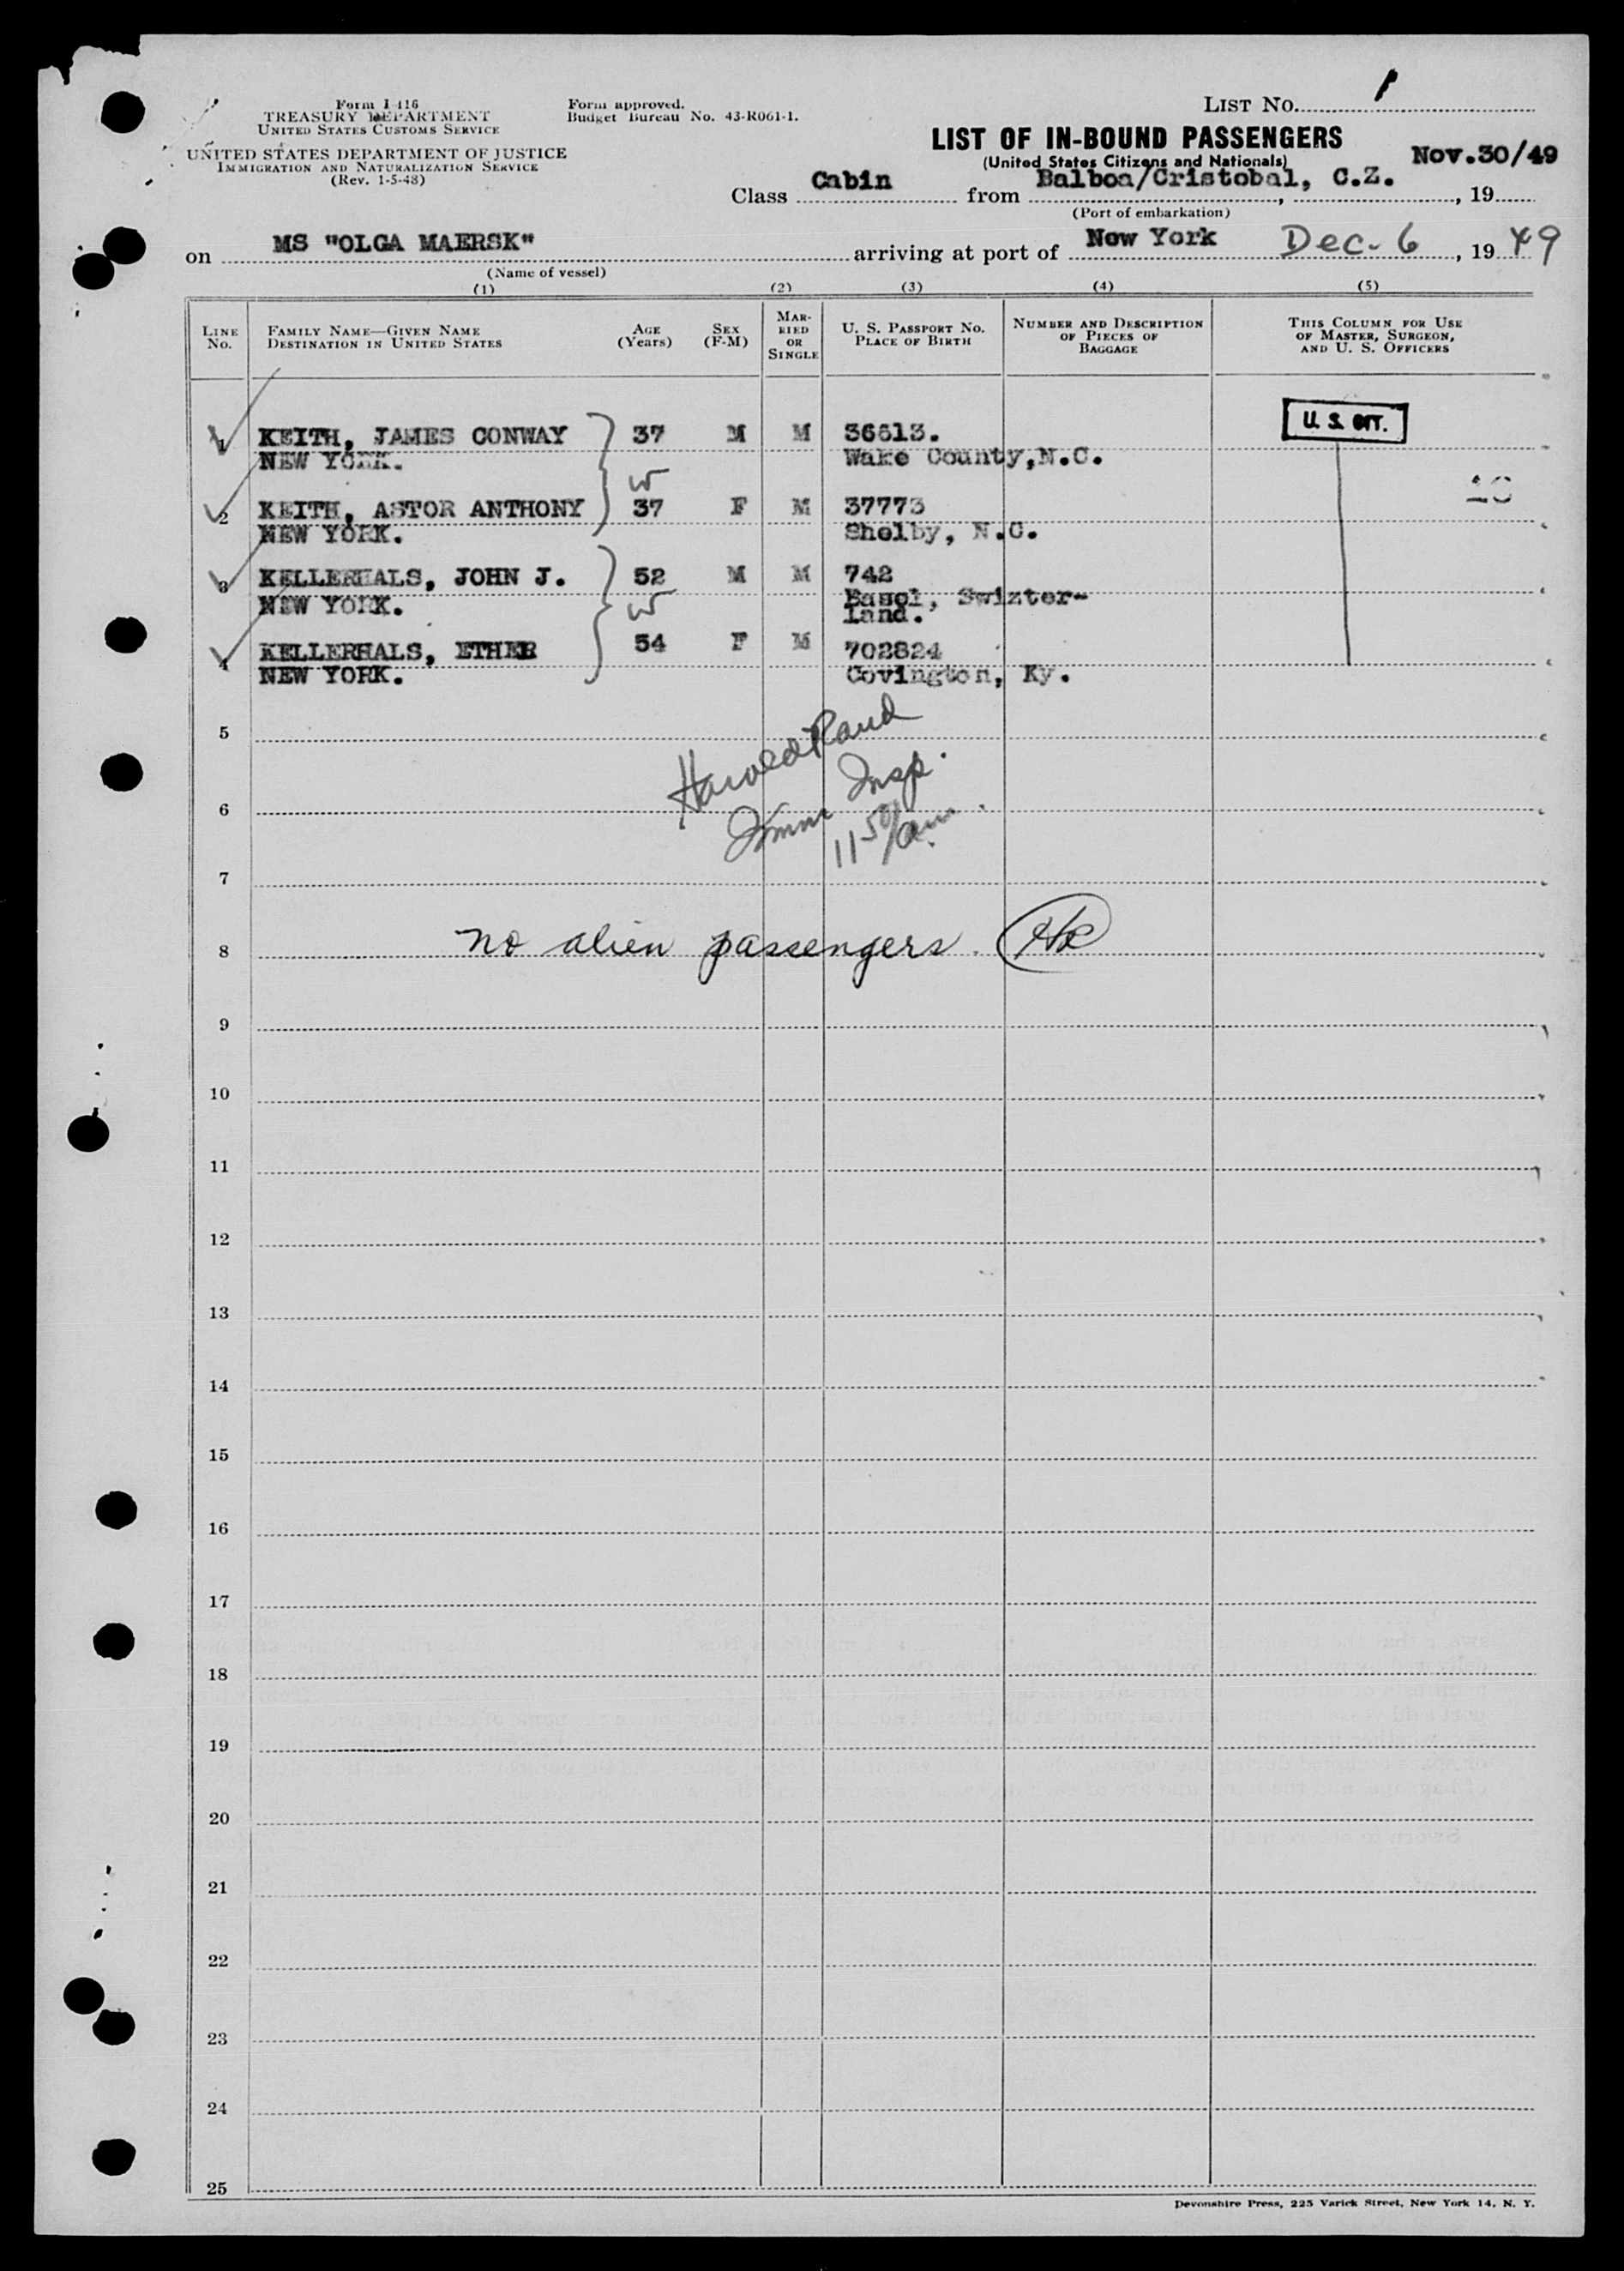 Form I-416
TREASURY DEPARTMENT
UNITED STATES CUSTOMS SERVICE
UNITED STATES DEPARTMENT OF JUSTICE
IMMIGRATION AND NATURALIZATION SERVICE
(Rev. 1-5-48)
Form approved.
Budget Bureau No. 43-R061-1.
LIST NO. 1
LIST OF IN-BOUND PASSENGERS
(United States Citizens and Nationals)
Nov.30/49
Class Cabin from Balboa/Cristobal, C.Z. , , 19
(Port of embarkation)
on MS "OLGA MAERSK" arriving at port of New York Dec. 6, 1949
(Name of vessel)
(1) (2) (3) (4) (5)
LINE No. FAMILY NAME—GIVEN NAME DESTINATION IN UNITED STATES AGE (Years) SEX (F-M) MARRIED OR SINGLE U. S. PASSPORT NO. PLACE OF BIRTH NUMBER AND DESCRIPTION OF PIECES OF BAGGAGE THIS COLUMN FOR USE OF MASTER, SURGEON, AND U. S. OFFICERS
1 KEITH, JAMES CONWAY 37 M M 36613. U. S. CIT.
NEW YORK. Wake County,N.C.
w
2 KEITH, ASTOR ANTHONY 37 F M 37773
NEW YORK. Shelby, N.C.
3 KELLERHALS, JOHN J. 52 M M 742
NEW YORK. Basel, Swizter-
land.
w
4 KELLERHALS, ETHER 54 F M 702824
NEW YORK. Covington, Ky.
5
Harold Rand
Imm Insp.
6
11 50/am.
7
8 no alien passengers. HR
9
10
11
12
13
14
15
16
17
18
19
20
21
22
23
24
25
Devonshire Press, 225 Varick Street, New York 14, N. Y.